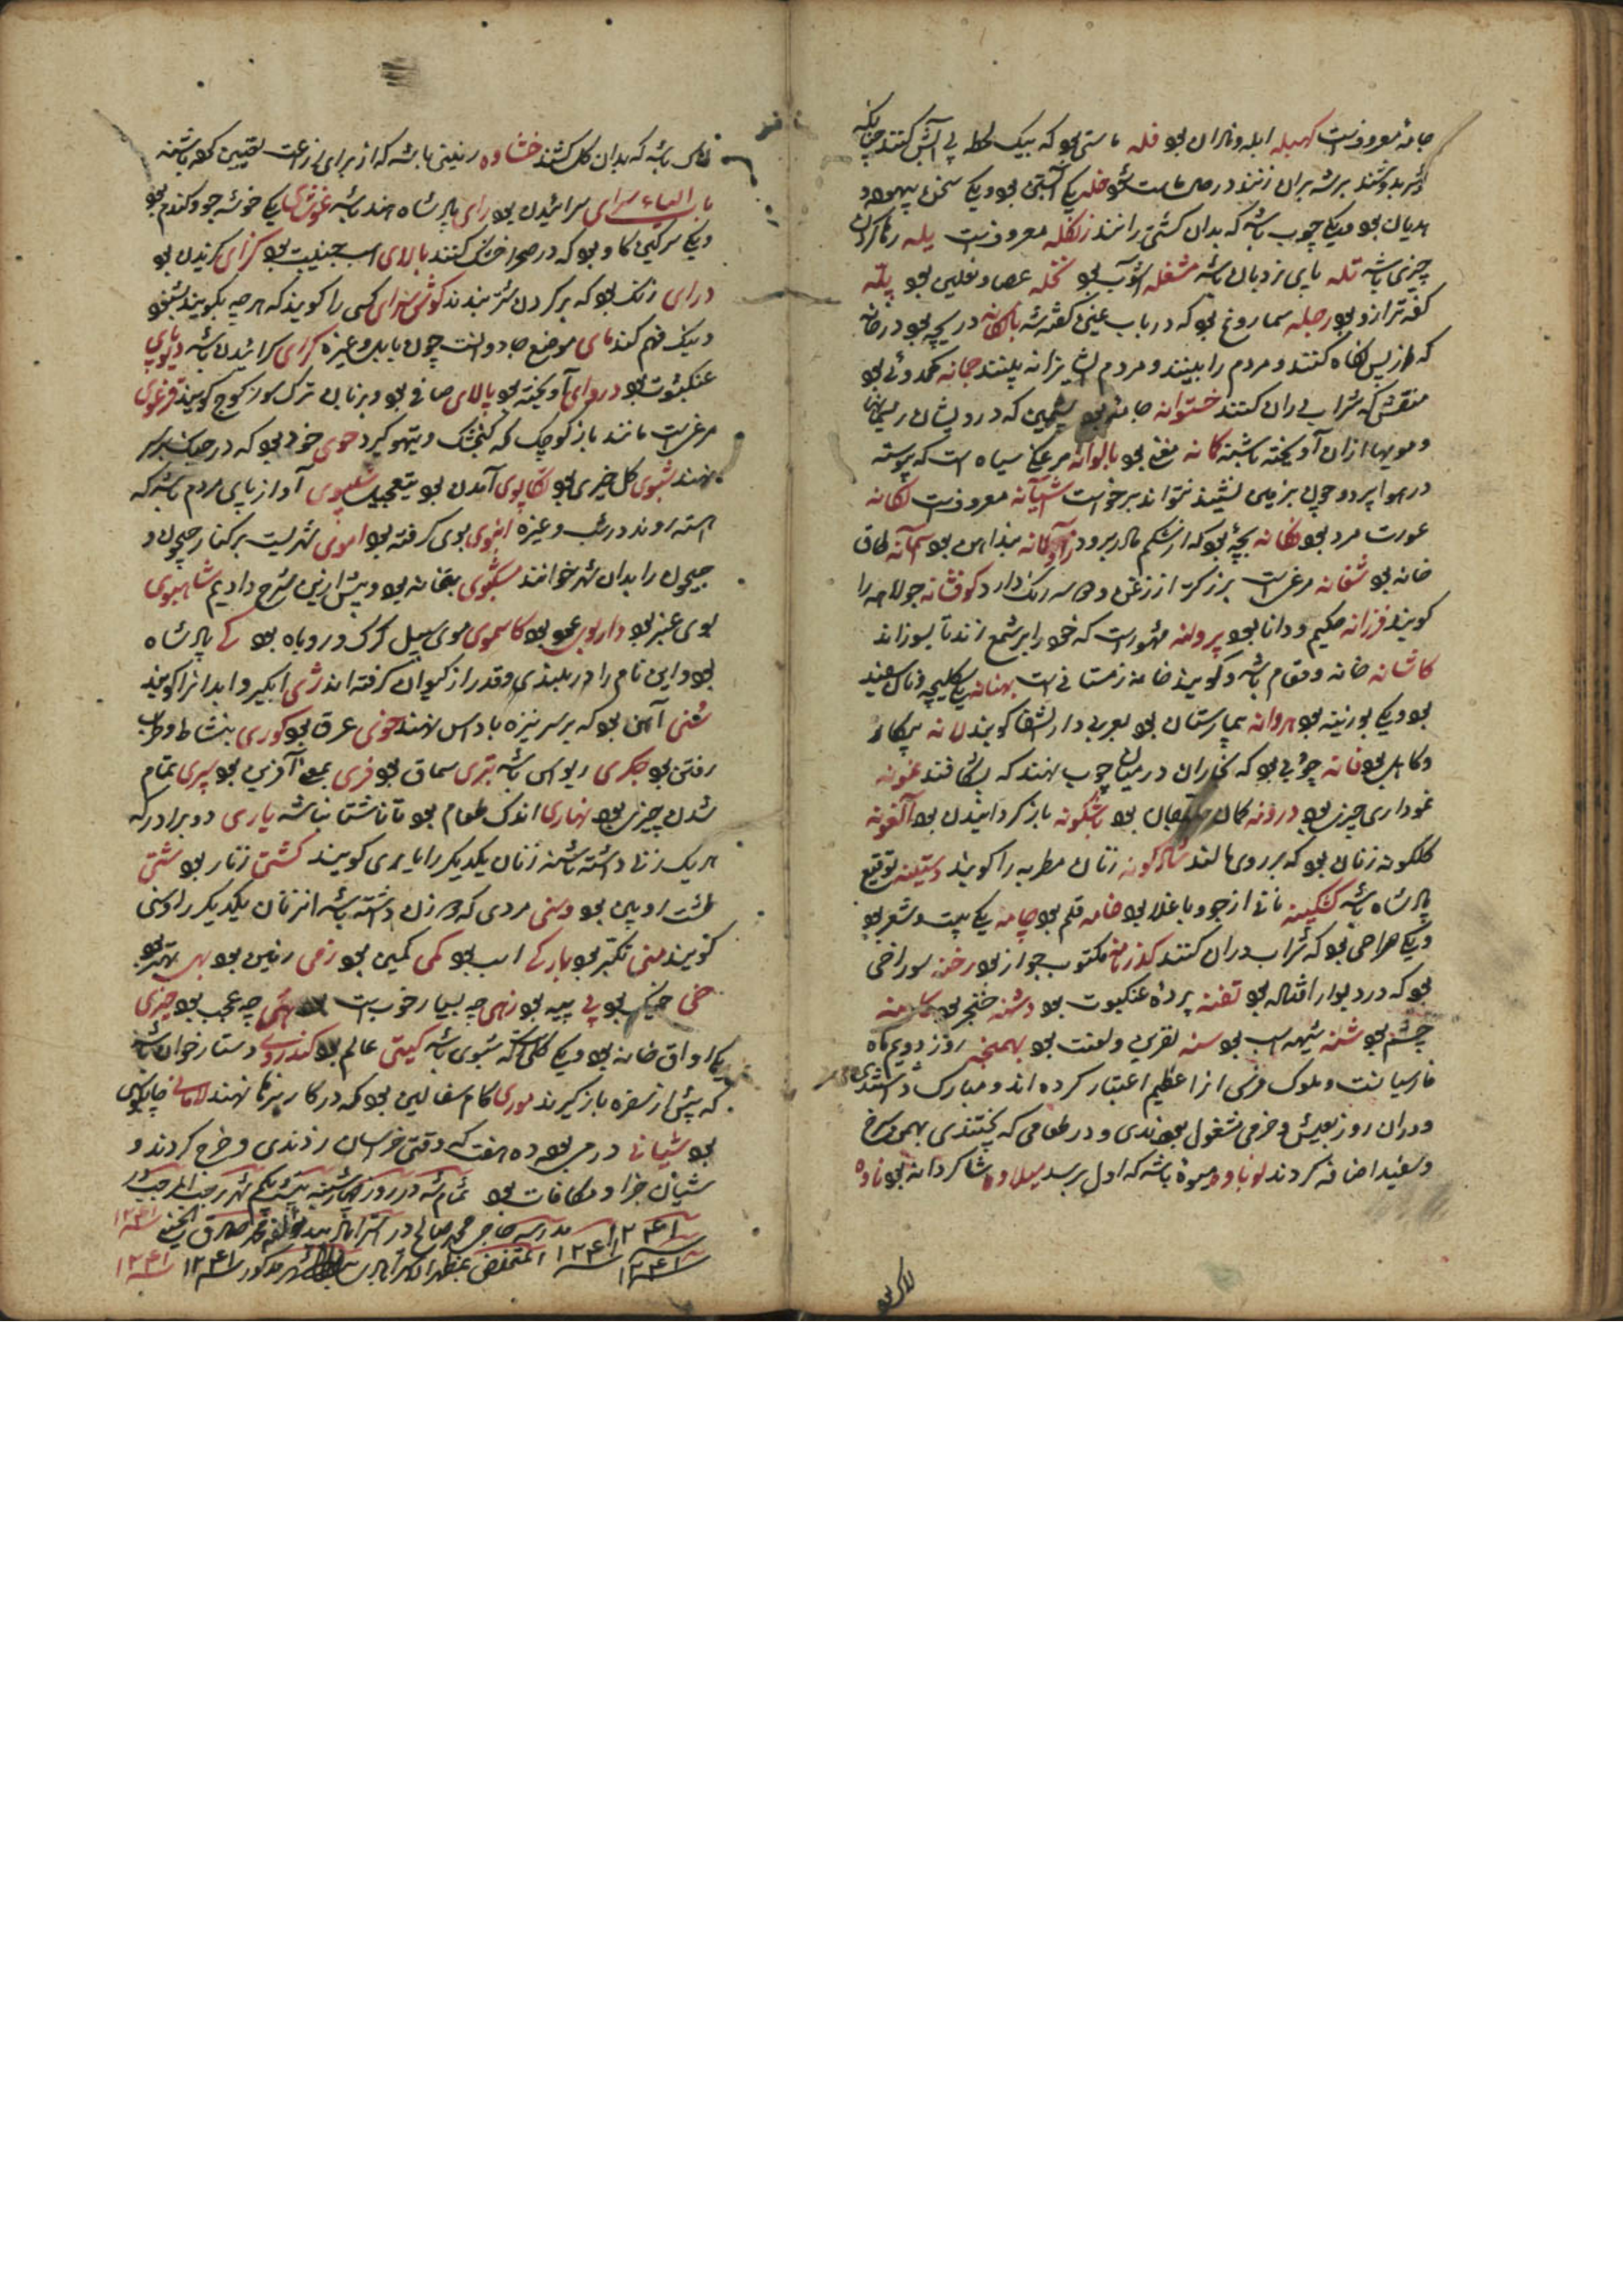 جامهٔ معروفست کهبله ابله و نادان بود فله ماستی بود که بیک لحظه بی آتش کنند چنانکه
شیر بدوشند برشه بران زنند در حال ماست شود خله یکی آلتی بود و یکی سخن بیهوده و
هذیان بود و یکی چوب باشد که بدان کشتی رانند زنگله معروفست یله رها کردن
چیزی باشد تله پای نردبان باشد مشغله آشوب بود نخله عصا و نعلین بود پله
کفه ترازو بود رجله سماروغ بود که در باب غین گفته شد بالکانه دریچه بود در خانه
که از پس نگاه کنند و مردم را بینند و مردم ایشانرا نه بینند جمانه کدوئی بود
منقش که شراب در ان کنند خستوانه جامهٔ بود پشمین که درویشان ریسمانها
و مویها از ان آویخته باشند کانه بود بالوانه مرغکی سیاه است که پیوسته
در هوا پرد و چون بزمین نشیند نتواند برخواست آشیانه معروفست لکانه
عورت مرد بود فکانه بچهٔ بود که از شکم مادر برود زاولانه بند آهن بود سمانه طاق
خانه بود شغانه مرغیست بزرگتر از زغن و دو سه رنگ دارد کوفشانه جولاهه را
گویند فرزانه حکیم و دانا بود پروانه مشهورست که خود را بر شمع زند تا بسوزاند
کاشانه خانه و مقام باشد و گویند خانه زمستانی است بهنانه یکی کلیچه و نان سفید
بود و یکی بوزینه بود هروانه بیمارستان بود بعربی دار الشفا گویند لانه بیکار
و کاهل بود فانه چوبی بود که نجاران در میان چوب نهند که بشکافند غنونه
نموداری چیزی بود درونه کمان حلاجان بود باشگونه باز گردانیدن بود آلغونه
گلگونه زنان بود که بر روی مالند شادگونه زنان مطربه را گویند دستینه توقیع
پادشاه باشد کشکینه نانی از جو و باقلا بود خامه قلم بود چامه یکی بیت و شعر بود
و یکی صراحی بود که شراب دران کنند گذرنامه مکتوب جواز بود رخنه سوراخی
بود که در دیوار افتاده بود تفنه پردهٔ عنکبوت بود دشنه خنجر بود
چشم بود شنه شیهه اسب بود سنه نفرین و لعنت بود بهمنجنه روز دویم ماه
فارسیانست و ملوک فرس انرا عظیم اعتبار کرده اند و مبارک داشتندی
و دران روز بعیش و خرمی مشغول بودندی و در طعامی که پختندی بهمن سرخ
و سفید اضافه کردند نوباوه میوهٔ باشد که اول برسد میلاوه شاگردانه بود ناوه
باشد که بدان گل کشند خشاوه زمینی باشد که از برای زراعت تعیین کرده باشند
باب الیاء سرای سرائیدن بود رای پادشاه هند باشد غوشای یکی خوشه جو و گندم بود
و یکی سرگین گاو بود که در صحرا خشک کنند بالای اسب جنیبت بود گزای گزیدن بود
درای زنگ بود که بر گردن شتر بندند گوش سرای کسی را گویند که هر چه بگویند بشنود
و نیک فهم کند مای موضع جادوانست چون بابل و غیره گرای گرائیدن باشد دیوپای
عنکبوت بود دروای آویخته بود پالای صافی بود و بزبان ترک گویند قرغوی
مرغیست مانند باز کوچک که گنجشک و تیهو گیرد خوی خود بود که در جنگ بر سر
نهند شبوی گل خیری بود تکاپوی آمدن بود بتعجیل شلپوی آواز پای مردم باشد که
آهسته روند در شب و غیره انبوی بوی گرفته بود آموی شهریست بر کنار جیحون و
جیحون را بدان شهر خوانند مشکوی بتخانه بود و پیش ازین شرح دادیم شاهبوی
بوی عنبر بود داربوی عود بود کاسموی موی سبیل گرگ و روباه بود کی پادشاه
بود و این نام را در بلندی و قدر از کیوان گرفته اند ژی آبگیر و آبدانرا گویند
شنی آهن بود که بر سر نیزه یا داس نهند خوی عرق بود کوری بنشاط و طرب
رفتن بود جکری ریواس باشد تتری سماق بود فری بمعنی آفرین بود سپری تمام
شدن چیزی بود نهاری اندک طعام بود تا ناشتا نباشد یاری دو برادر که
هر یک زنی داشته باشند زنان یکدیگر را یاری گویند کشتی زنار بود شتی
طشت رویین بود وسنی مردی که دو زن داشته باشد انزنان یکدیگر را وسنی
گویند منی تکبر بود بارگی اسب بود کمی کمین بود زمی زمین بود بهی بهتر بود
خی خیک بود پی پیه بود زهی چه بسیار خوبست چه عجب بود چیزی
یکی اواق خانه بود و یکی گلی است که شبوی باشد گیتی عالم بود کندوری دستارخوان باشد
که پیش از سفره باز گیرند موری کام سفالین بود که در کاریزها نهند لامانی چاپلوسی
بود شیانی درمی بود ده هفت که وقتی در خراسان زدندی و خرج کردند و
شیان جزا و مکافات بود تمام شد در روز چهارشنبه بیست یکم شهر رجب المرجب ۱۲۴۱
۱۲۴۱ ۱۲۴۱ مدرسه حاجی محمد صالح در استراباد محمد صادق
۱۲۴۱ المتخلص بمظهر الاسترابادی شهر مذکور سنه ۱۲۴۱ ۱۲۴۱